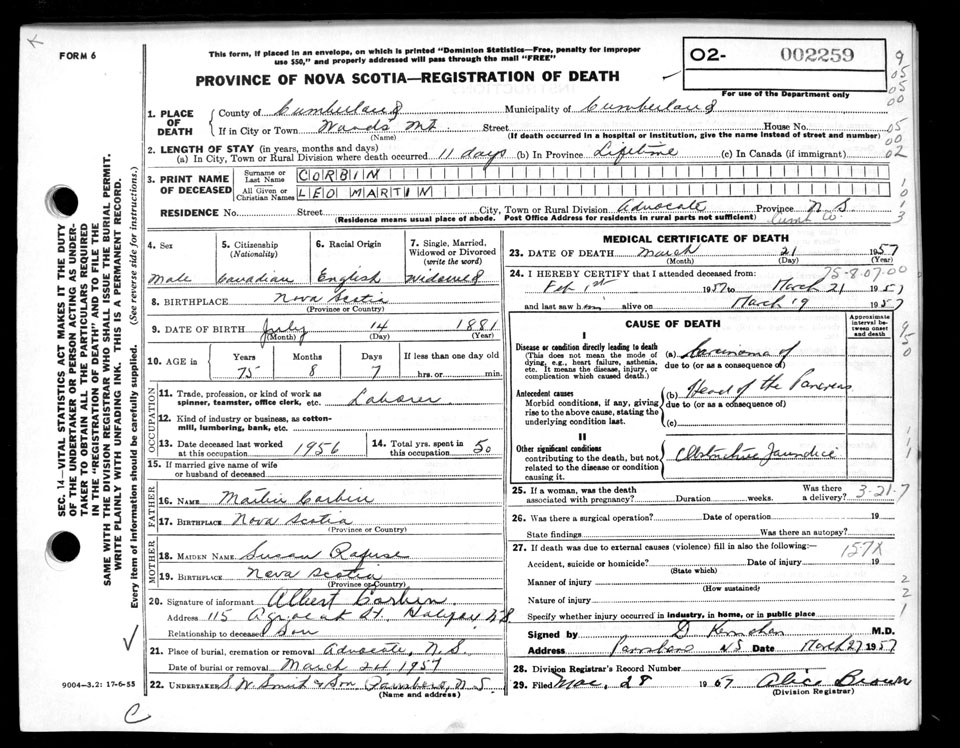 FORM 6
This form, if placed in an envelope, on which is printed "Dominion Statistics—Free, penalty for improper
use $50," and properly addressed will pass through the mail "FREE"
PROVINCE OF NOVA SCOTIA—REGISTRATION OF DEATH
O2- 002259
For use of the Department only
9
05
05
00
05
00
02
1
0
1
3
SEC. 14—VITAL STATISTICS ACT MAKES IT THE DUTY
OF THE UNDERTAKER OR PERSON ACTING AS UNDER-
TAKER TO OBTAIN ALL THE PARTICULARS REQUIRED
IN THE "REGISTRATION OF DEATH" AND TO FILE THE
SAME WITH THE DIVISION REGISTRAR WHO SHALL ISSUE THE BURIAL PERMIT.
WRITE PLAINLY WITH UNFADING INK. THIS IS A PERMANENT RECORD.
Every item of information should be carefully supplied. (See reverse side for instructions.)
1. PLACE OF DEATH
County of Cumberland Municipality of Cumberland
If in City or Town Wards Mt. Street House No.
(Name) (If death occurred in a hospital or institution, give the name instead of street and number)
2. LENGTH OF STAY (in years, months and days)
(a) In City, Town or Rural Division where death occurred 11 days (b) In Province Lifetime (c) In Canada (if immigrant)
3. PRINT NAME OF DECEASED
Surname or Last Name CORBIN
All Given or Christian Names LEO MARTIN
RESIDENCE No. Street City, Town or Rural Division Advocate Province N S
(Residence means usual place of abode. Post Office Address for residents in rural parts not sufficient) Cumb Co.
4. Sex
Male
5. Citizenship (Nationality)
Canadian
6. Racial Origin
English
7. Single, Married, Widowed or Divorced (write the word)
Widowed
8. BIRTHPLACE Nova Scotia
(Province or Country)
9. DATE OF BIRTH July 14 1881
(Month) (Day) (Year)
10. AGE in Years Months Days If less than one day old
75 8 7 hrs. or min.
OCCUPATION
11. Trade, profession, or kind of work as spinner, teamster, office clerk, etc. Laborer
12. Kind of industry or business, as cotton-mill, lumbering, bank, etc.
13. Date deceased last worked at this occupation 1956
14. Total yrs. spent in this occupation 50
15. If married give name of wife or husband of deceased
FATHER
16. Name Martin Corbin
17. Birthplace Nova Scotia
(Province or Country)
MOTHER
18. Maiden Name Susan Rafuse
19. Birthplace Nova Scotia
(Province or Country)
20. Signature of informant Albert Corbin
Address 115 St. Halifax N S
Relationship to deceased Son
21. Place of burial, cremation or removal Advocate, N.S.
Date of burial or removal March 24 1957
22. Undertaker S W Smith & Son Parrsboro, N S
(Name and address)
9004—3.2: 17-6-55
C
MEDICAL CERTIFICATE OF DEATH
23. DATE OF DEATH March 21 1957
(Month) (Day) (Year)
75-8-07.00
24. I HEREBY CERTIFY that I attended deceased from:
Feb 1st 1957 to March 21 1957
and last saw him alive on March 19 1957
CAUSE OF DEATH
Approximate interval between onset and death
I
Disease or condition directly leading to death
(This does not mean the mode of dying, e.g., heart failure, asthenia, etc. It means the disease, injury, or complication which caused death.)
(a) Carcinoma of
due to (or as a consequence of)
Antecedent causes
Morbid conditions, if any, giving rise to the above cause, stating the underlying condition last.
(b) Head of the Pancreas
due to (or as a consequence of)
(c)
II
Other significant conditions
contributing to the death, but not related to the disease or condition causing it.
Obstructive Jaundice
950
1
1
1
25. If a woman, was the death associated with pregnancy? Duration weeks. Was there a delivery?
3-21-7
26. Was there a surgical operation? Date of operation 19
State findings Was there an autopsy?
27. If death was due to external causes (violence) fill in also the following:
157X
Accident, suicide or homicide? Date of injury 19
(State which)
Manner of injury
(How sustained)
Nature of injury
Specify whether injury occurred in industry, in home, or in public place
2
2
1
Signed by D M.D.
Address Parrsboro N S Date March 27 1957
28. Division Registrar's Record Number
29. Filed Mar. 28 1957 Alice Brown
(Division Registrar)